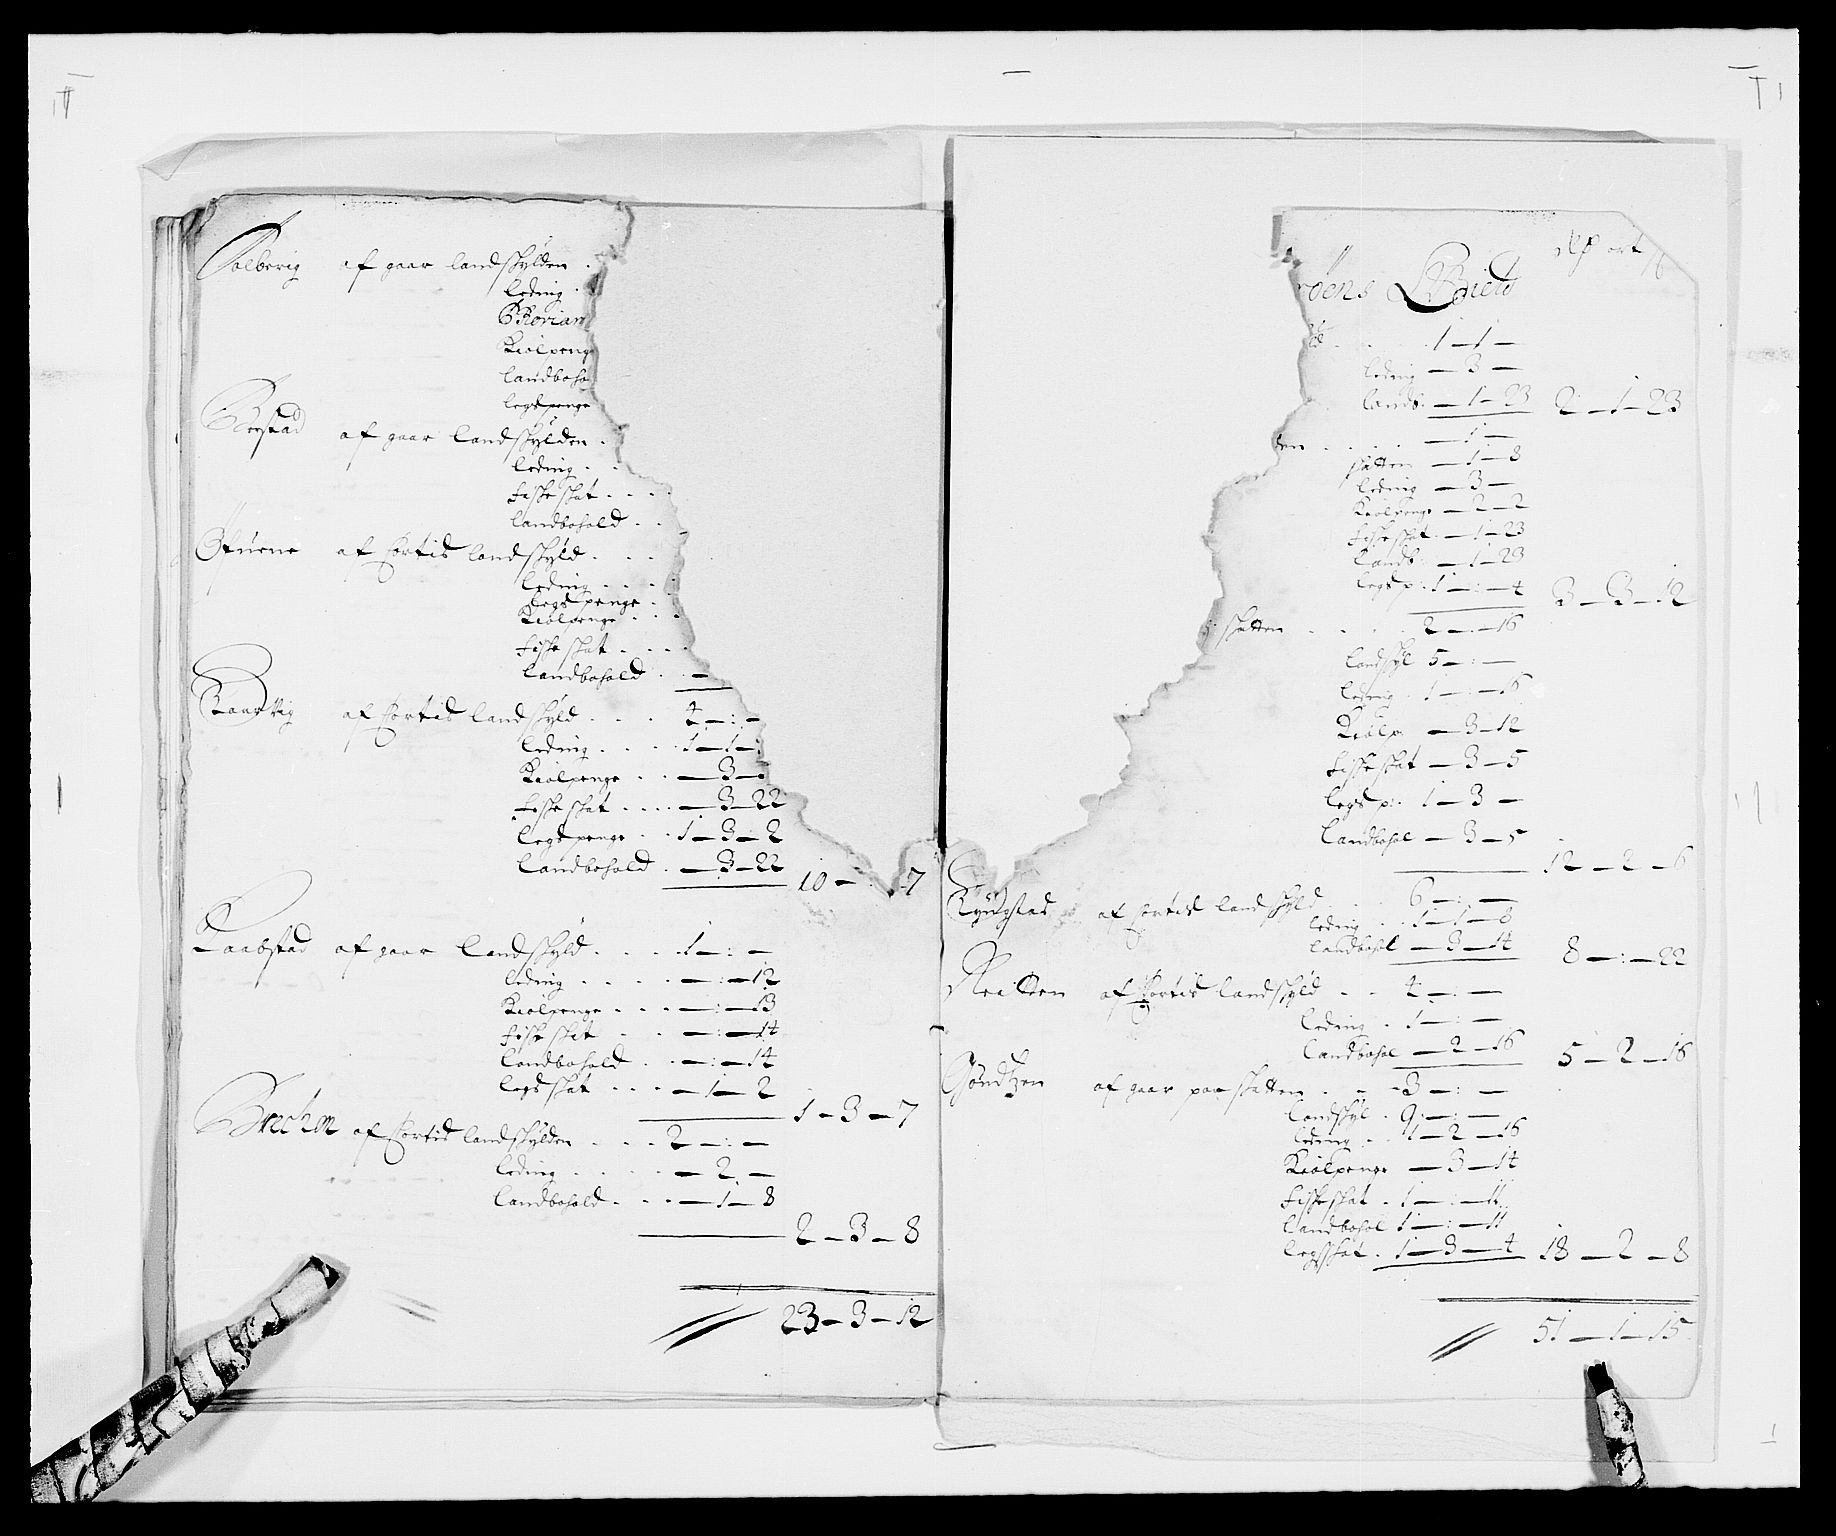 Solberig af gaar landskylden .
leding .
Thorian
Kiølpeng
landboho
legdspenge
Røystad af gaar landskylden .
leding . .
fiskeskat . . . .
landbohold . .
Ofuene af Hortis landskyld . . .
leding . . . .
legdspenge .
Kiølpenge . . .
fiskeskat . . . .
landbohold . –
Kaarvig af Hortis landskyld . . . 4 – : –
leding . . . . 1 – 1 – :
Kiølpenge . . – 3 – :
fiskeskat . . . . – 3 – 22
legdspenge . . 1 – 3 – 2
landbohold . – 3 – 22
10 – : – 7
Raabstad af gaar landskyld . . . . 1 – : –
leding . . . . . – : – 12
Kiølpenge . . . – : – 13
fiskeskat . . – : – 14
landbohold . . – : – 14
legdskat . . . – 1 – 2
1 – 3 – 7
Brechen af Hortis landskylden . . . 2 – : –
leding . . . . . – 2 . –
landbohold . . . – 1 – 8
2 – 3 – 8
23 – 3 – 12
ort
røens Gield
. . . . 1 – 1 –
leding – 3 –
lands: – 1 – 23
2 – 1 – 23
den . . . . – 1 –
skatten – 1 – 8
leding – 3 –
Kiølpenge – 2 – 2
fiskeskat . – 1 – 23
landb: – 1 – 23
legdsp: 1 – : – 4
3 – 3 – 12
skatten . . . . 2 – : – 16
landskyl 5 – : –
leding . 1 – : – 16
Kiølp: – 3 – 12
fiskeskat – 3 – 5
legdsp: 1 – 3 –
landbohol – 3 – 5
12 – 2 – 6
Ryngstad af Hortis landskyld . . . 6 – : –
leding . . 1 – 1 – 8
landbohol – 3 – 14
8 – : – 22
Neitten af Hortis landskyld . . 4 – : –
leding . 1 – : –
landbohol – 2 – 16
5 – 2 – 16
Gøndtzen af gaar paa skatten . . . 3 – : –
landskyl . 9 – : –
leding . . 1 – 2 – 16
Kiølpenge – 3 – 14
fiskeskat . 1 – : – 11
landbohol 1 – : – 11
legdskat . 1 – 3 – 4
18 – 2 – 8
51 – 1 – 15